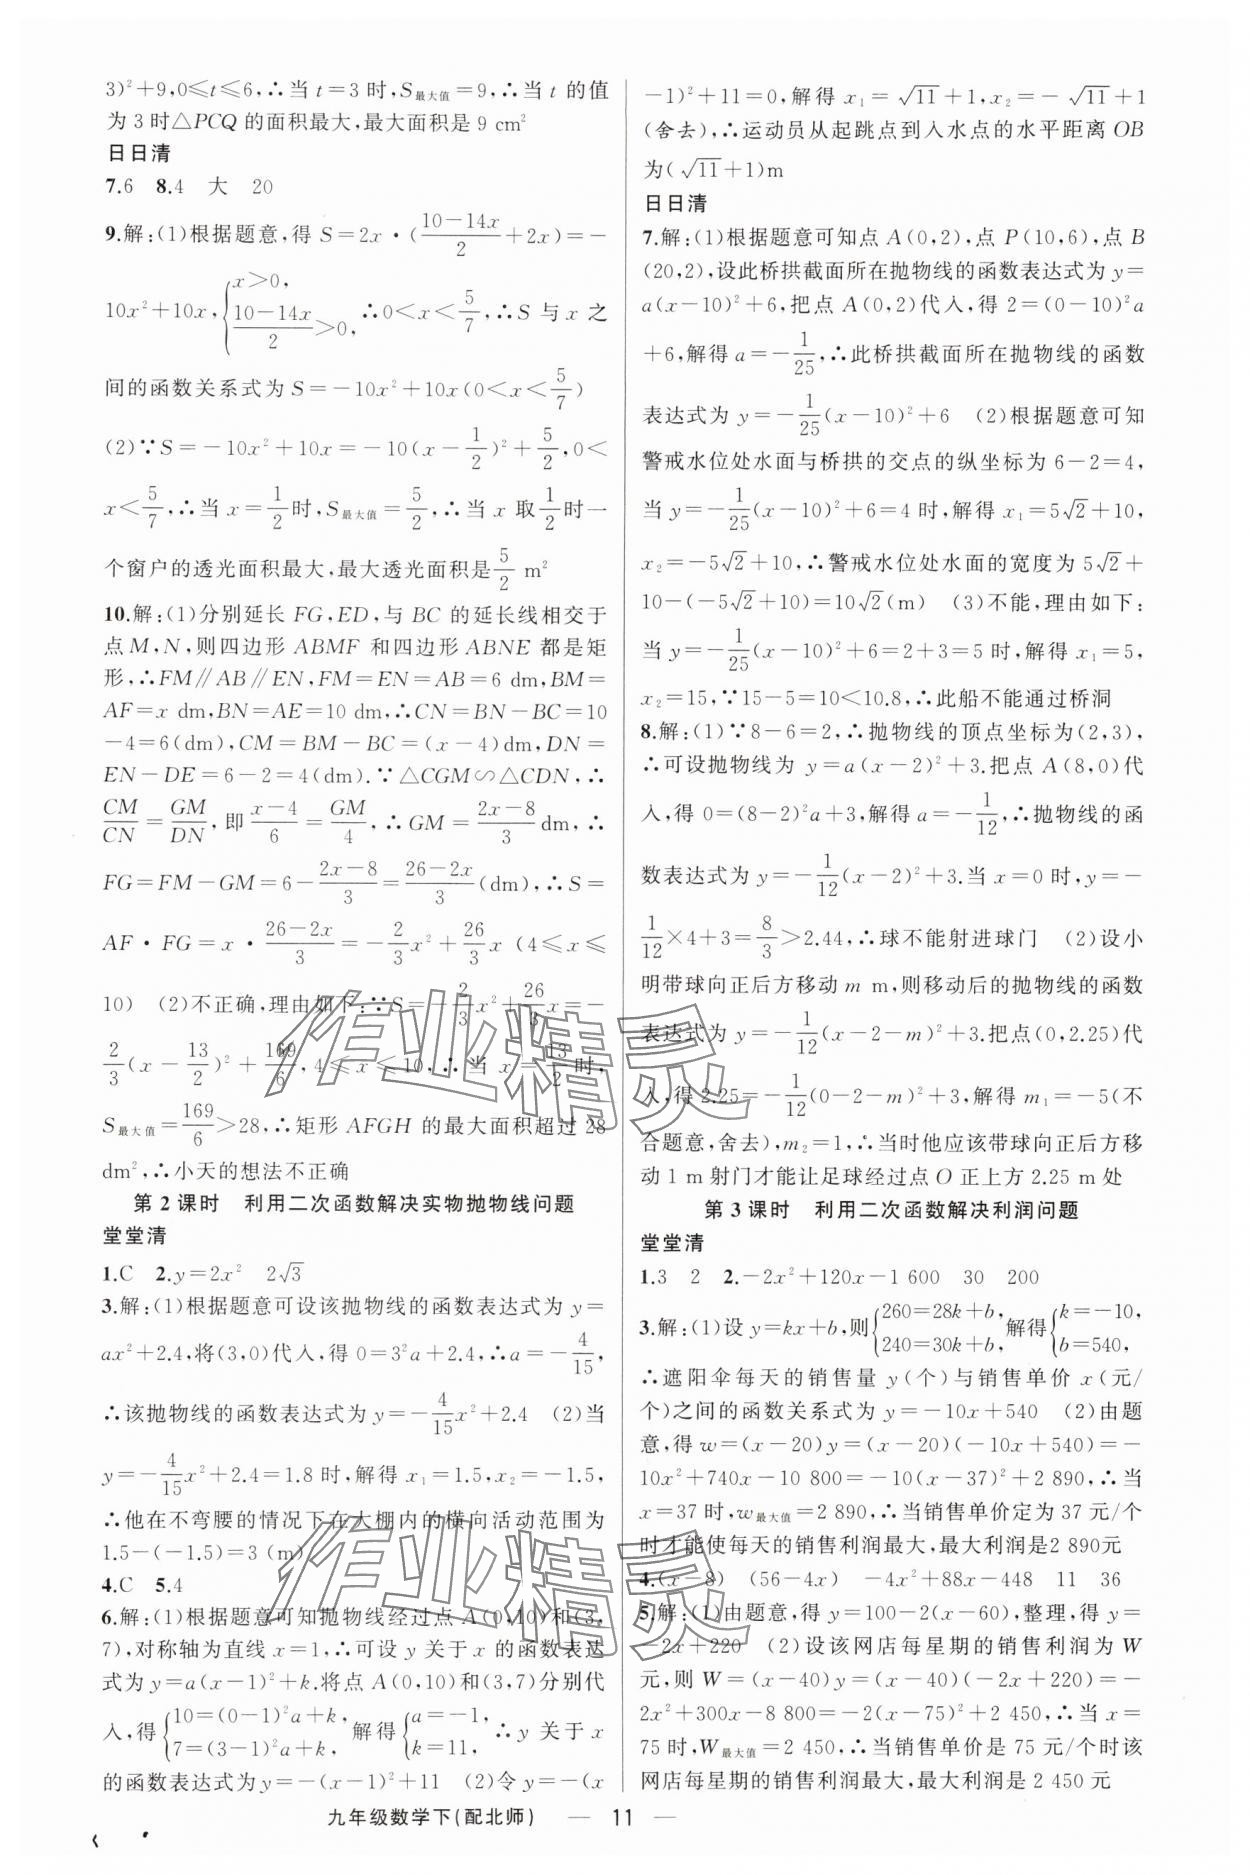 3)²+9,0≤t≤6,∴当 t=3 时,S最大值=9,∴当 t 的值
为 3 时△PCQ 的面积最大,最大面积是 9 cm²
日日清
7.6 8.4 大 20
9.解:(1)根据题意,得 S=2x·((10-14x)/2+2x)=-
10x²+10x,{x>0, (10-14x)/2>0, ∴0<x<5/7,∴S 与 x 之
间的函数关系式为 S=-10x²+10x(0<x<5/7)
(2)∵S=-10x²+10x=-10(x-1/2)²+5/2,0<
x<5/7,∴当 x=1/2时,S最大值=5/2,∴当 x 取1/2时一
个窗户的透光面积最大,最大透光面积是5/2 m²
10.解:(1)分别延长 FG,ED,与 BC 的延长线相交于
点 M,N,则四边形 ABMF 和四边形 ABNE 都是矩
形,∴FM∥AB∥EN,FM=EN=AB=6 dm,BM=
AF=x dm,BN=AE=10 dm,∴CN=BN-BC=10
-4=6(dm),CM=BM-BC=(x-4)dm,DN=
EN-DE=6-2=4(dm).∵△CGM∽△CDN,∴
CM/CN=GM/DN,即(x-4)/6=GM/4,∴GM=(2x-8)/3 dm,∴
FG=FM-GM=6-(2x-8)/3=(26-2x)/3(dm),∴S=
AF·FG=x·(26-2x)/3=-2/3x²+26/3x (4≤x≤
10) (2)不正确,理由如下:∵S=-2/3x²+26/3x=-
2/3(x-13/2)²+169/6,4≤x≤10,∴当 x=13/2时,
S最大值=169/6>28,∴矩形 AFGH 的最大面积超过 28
dm²,∴小天的想法不正确
第 2 课时 利用二次函数解决实物抛物线问题
堂堂清
1.C 2.y=2x² 2√3
3.解:(1)根据题意可设该抛物线的函数表达式为 y=
ax²+2.4,将(3,0)代入,得 0=3²a+2.4,∴a=-4/15,
∴该抛物线的函数表达式为 y=-4/15x²+2.4 (2)当
y=-4/15x²+2.4=1.8 时,解得 x₁=1.5,x₂=-1.5,
∴他在不弯腰的情况下在大棚内的横向活动范围为
1.5-(-1.5)=3 (m)
4.C 5.4
6.解:(1)根据题意可知抛物线经过点 A(0,10)和(3,
7),对称轴为直线 x=1,∴可设 y 关于 x 的函数表达
式为 y=a(x-1)²+k.将点 A(0,10)和(3,7)分别代
入,得{10=(0-1)²a+k, 7=(3-1)²a+k, 解得{a=-1, k=11, ∴y 关于 x
的函数表达式为y=-(x-1)²+11 (2)令 y=-(x
-1)²+11=0,解得 x₁=√11+1,x₂=-√11+1
(舍去),∴运动员从起跳点到入水点的水平距离 OB
为(√11+1)m
日日清
7.解:(1)根据题意可知点 A(0,2),点 P(10,6),点 B
(20,2),设此桥拱截面所在抛物线的函数表达式为 y=
a(x-10)²+6,把点 A(0,2)代入,得 2=(0-10)²a
+6,解得 a=-1/25,∴此桥拱截面所在抛物线的函数
表达式为 y=-1/25(x-10)²+6 (2)根据题意可知
警戒水位处水面与桥拱的交点的纵坐标为 6-2=4,
当 y=-1/25(x-10)²+6=4 时,解得 x₁=5√2+10,
x₂=-5√2+10,∴警戒水位处水面的宽度为 5√2+
10-(-5√2+10)=10√2(m) (3)不能,理由如下:
当 y=-1/25(x-10)²+6=2+3=5 时,解得 x₁=5,
x₂=15,∵15-5=10<10.8,∴此船不能通过桥洞
8.解:(1)∵8-6=2,∴抛物线的顶点坐标为(2,3),
∴可设抛物线为 y=a(x-2)²+3.把点 A(8,0)代
入,得 0=(8-2)²a+3,解得 a=-1/12,∴抛物线的函
数表达式为 y=-1/12(x-2)²+3.当 x=0 时,y=-
1/12×4+3=8/3>2.44,∴球不能射进球门 (2)设小
明带球向正后方移动 m m,则移动后的抛物线的函数
表达式为 y=-1/12(x-2-m)²+3.把点(0,2.25)代
入,得 2.25=-1/12(0-2-m)²+3,解得 m₁=-5(不
合题意,舍去),m₂=1,∴当时他应该带球向正后方移
动 1 m 射门才能让足球经过点 O 正上方 2.25 m 处
第 3 课时 利用二次函数解决利润问题
堂堂清
1.3 2 2.-2x²+120x-1 600 30 200
3.解:(1)设 y=kx+b,则{260=28k+b, 240=30k+b, 解得{k=-10, b=540,
∴遮阳伞每天的销售量 y(个)与销售单价 x(元/
个)之间的函数关系式为 y=-10x+540 (2)由题
意,得 w=(x-20)y=(x-20)(-10x+540)=-
10x²+740x-10 800=-10(x-37)²+2 890,∴当
x=37 时,w最大值=2 890,∴当销售单价定为 37 元/个
时才能使每天的销售利润最大,最大利润是2 890元
4.(x-8) (56-4x) -4x²+88x-448 11 36
5.解:(1)由题意,得 y=100-2(x-60),整理,得 y=
-2x+220 (2)设该网店每星期的销售利润为 W
元,则 W=(x-40)y=(x-40)(-2x+220)=-
2x²+300x-8 800=-2(x-75)²+2 450,∴当 x=
75 时,W最大值=2 450,∴当销售单价是 75 元/个时该
网店每星期的销售利润最大,最大利润是 2 450 元
九年级数学下(配北师) — 11 —
作业精灵
作业精灵